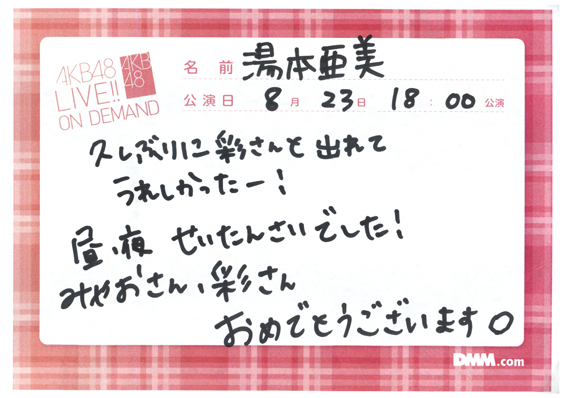 AKB48
LIVE!!
ON DEMAND
AKB
48
名前 湯本亜美
公演日 8月23日 18:00公演
久しぶりに彩さんと出れて
うれしかったー!
昼、夜 せいたんさいでした!
みやおさん、彩さん
おめでとうございます○
DMM.com